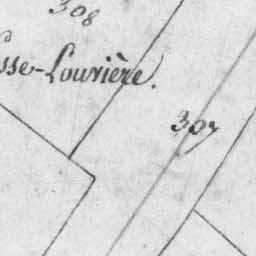 308
sse-Louvière.
307